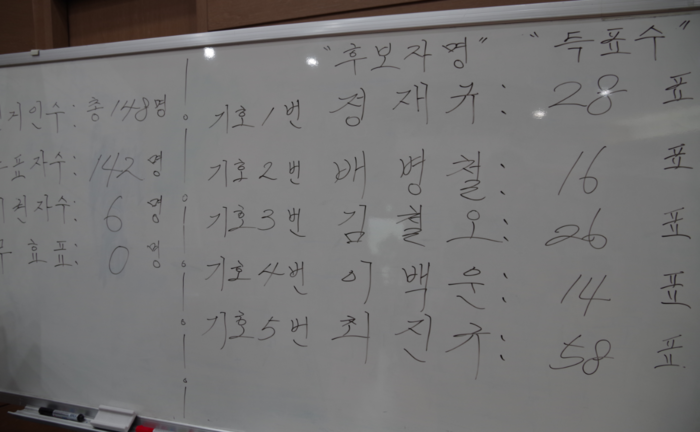 "후보자명" "득표수"
인수: 총 148명
표자수: 142 명
권자수: 6 명
효표: 0 명
기호1번 정재규: 28 표
기호2번 배병철: 16 표
기호3번 김철오: 26 표
기호4번 이백운: 14 표
기호5번 최진규: 58 표